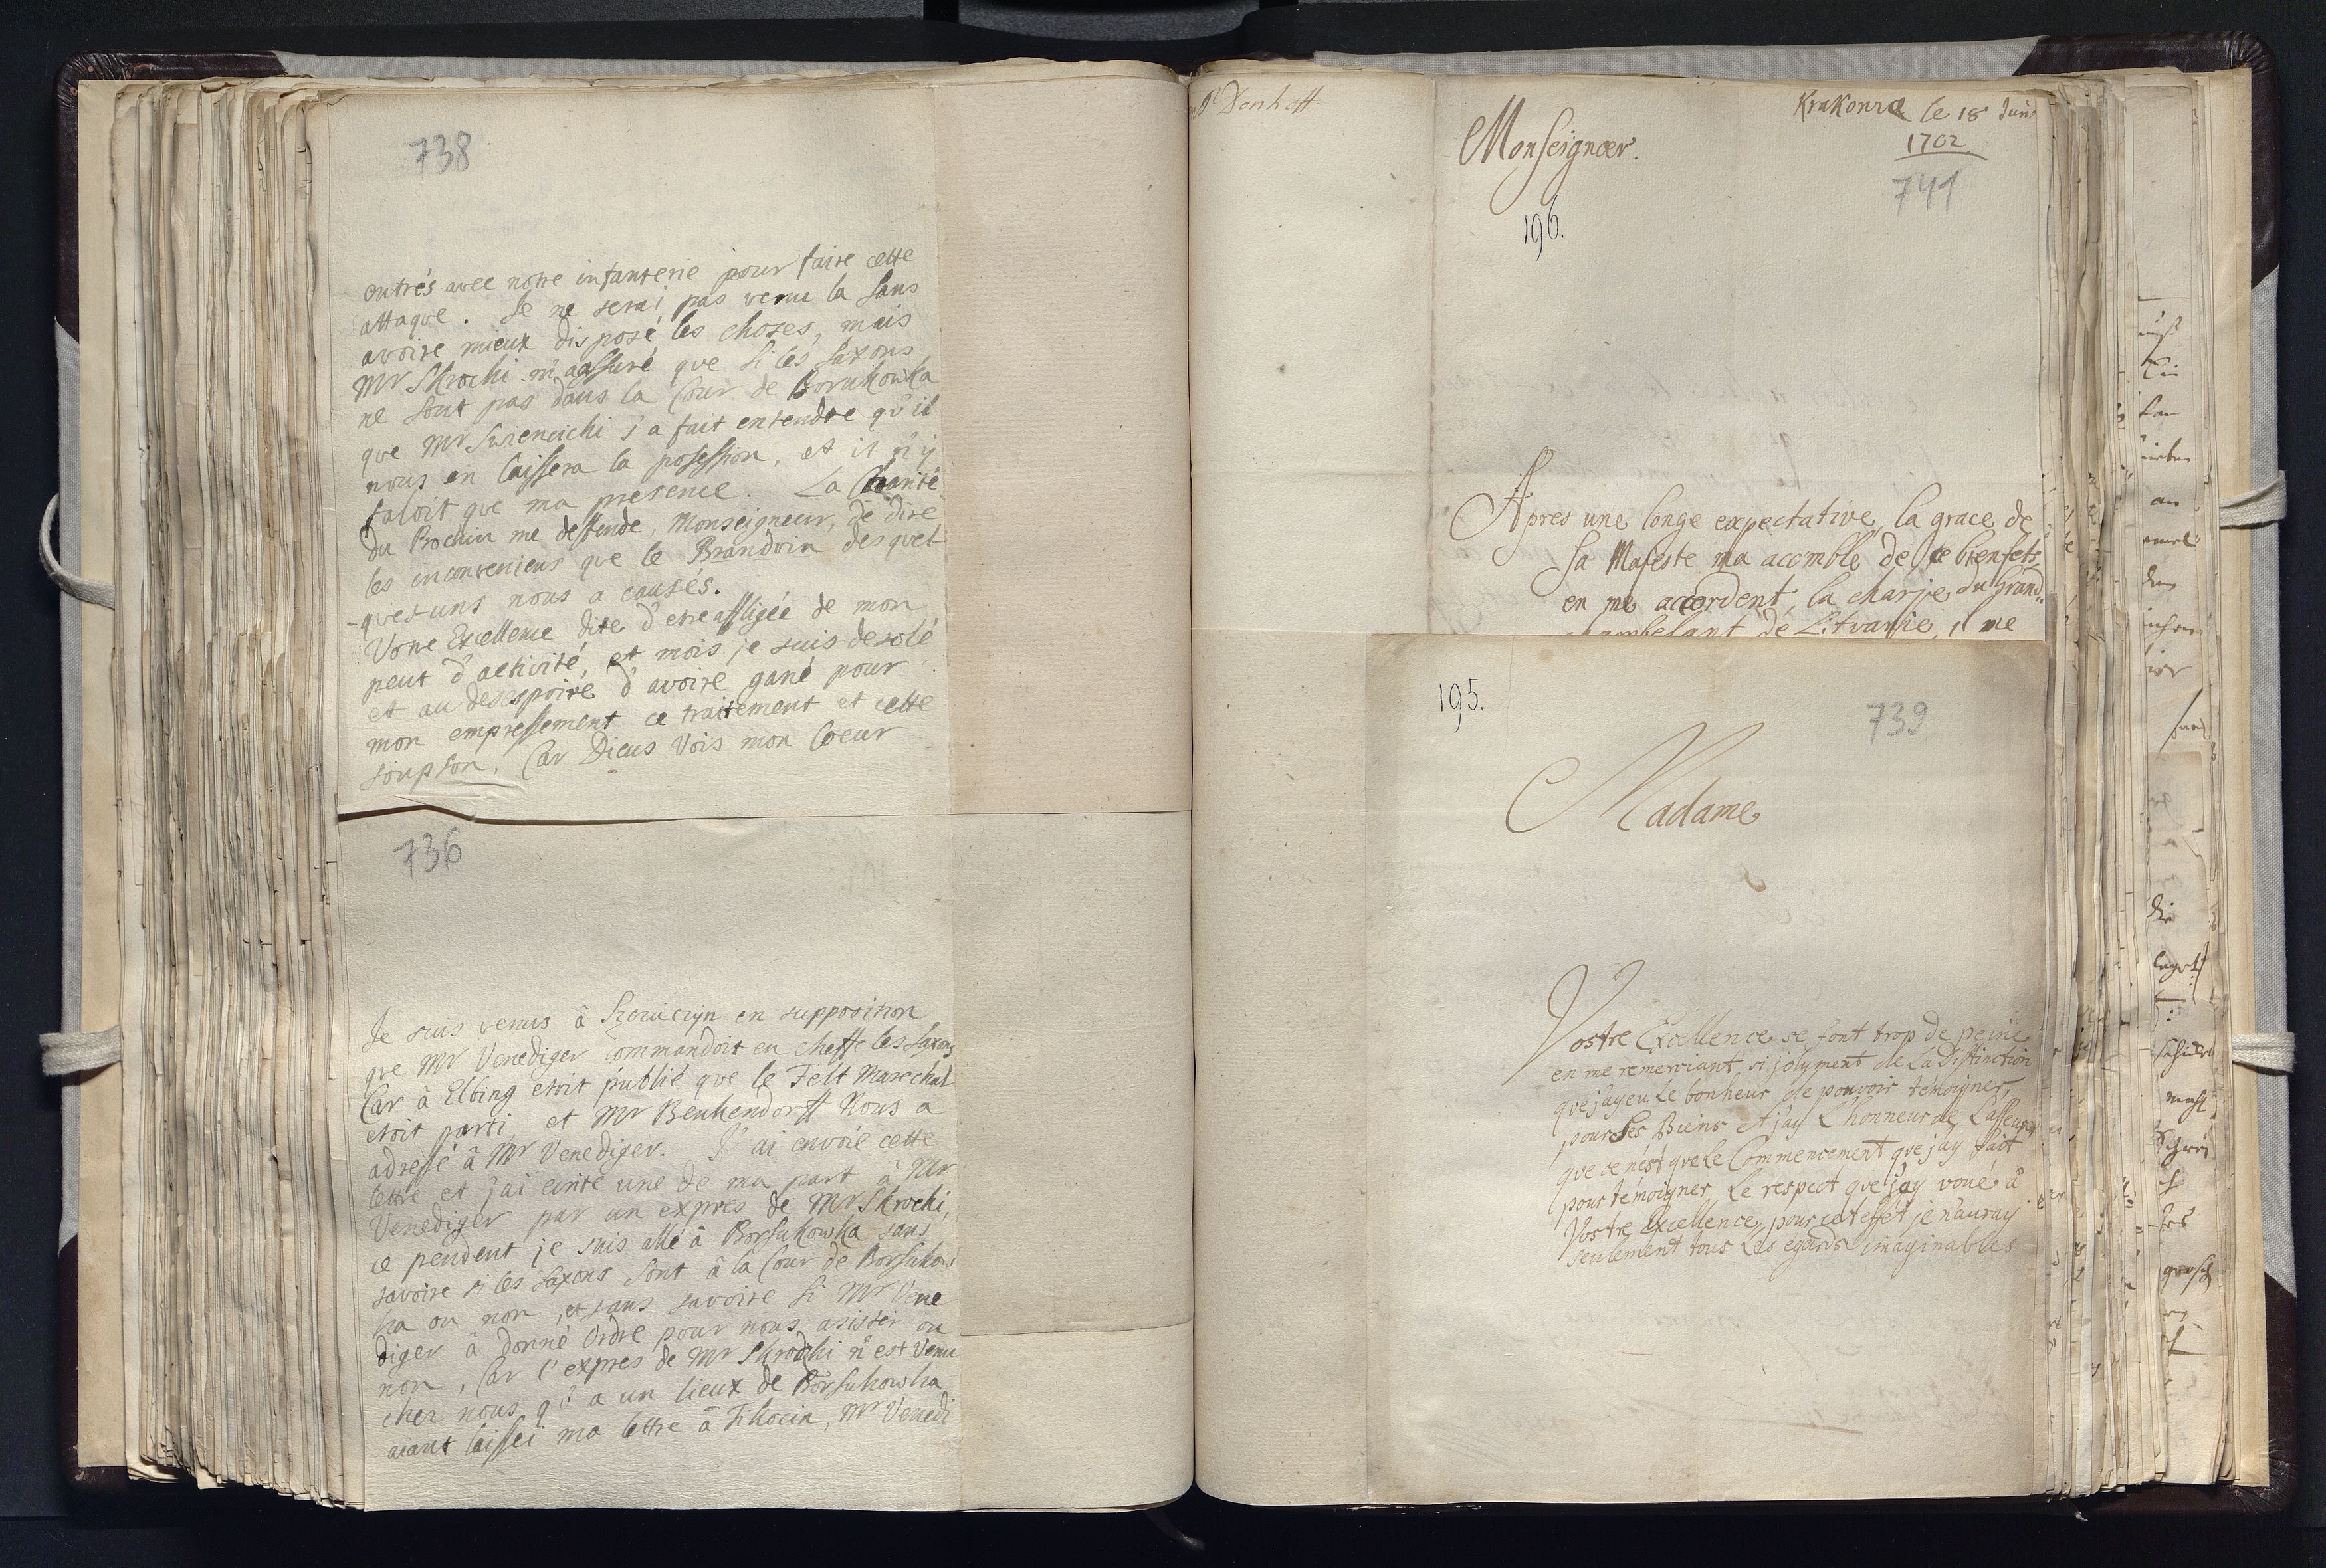 738
outrés avec notre infanterie pour faire cette
attaque. Je ne serai pas venu la sans
avoire mieux disposé les choses, mais
Mr Skrochi m'a assuré que si les Saxons
ne sont pas dans la Cour de Borsukowka
que Mr Swiencichi s'a fait entendre qu'il
nous en laissera la posession, et il n'y
faloit que ma presence. La Charité
du Prochin me deffende, Monseigneur, de dire
les inconveniens que le Brandvin des quel-
-ques-uns nous a causés.
Votre Excellence dite d'etre affligée de mon
peut d'activité, et mois je suis desolé
et au desespoire d'avoire gané pour
mon empressement ce traitement et cette
soupson, Car Dieus Vois mon Coeur
736
Je suis venus â Szczuczyn en supposition
que Mr Venediger commandoit en cheffe les Saxons
Car à Elbing etoit publié que le Felt Marechal
etoit parti, et Mr Benkendorff Nous a
adressé â Mr Venediger. J'ai envoié cette
lettre et j'ai ecrite une de ma part à Mr
Venediger par un expres de Mr Skrochi,
ce pendent je suis allé â Borsukowka sans
savoire si les Saxons sont â la Cour de Borsukow
ka ou non, et sans savoire si Mr Vene
diger â donné Ordre pour nous asister ou
non, Car l'expres de Mr Skrochi n'est Venu
chez nous qu'a un lieux de Borsukowka
aiant laissei ma lettre â Tikocin, Mr Venedi
Donhoff
Krakowiæ le 18 Juin
1702
Monseignœr.
741
196.
Apres une longe expectative, la grace de
Sa Majeste ma acomble de ce bienfets,
en me accordent, la charje du Grand
chambelant de Litvanie, il me
195.
739
Madame
Vostre Excellence se font trop de peine
en me remerciant, si jolyment de La Distinction
que j'ay eu Le bonheur de pouvoir temoigner
pour Ses Biens et j'ay L'honneur de L'asseurer
que ce n'est que Le Commencement que j'ay fait
pour temoigner Le respect que j'ay voué â
Vostre Excellence, pour cet effet je n'auray
seulement tous Les egards imaginables